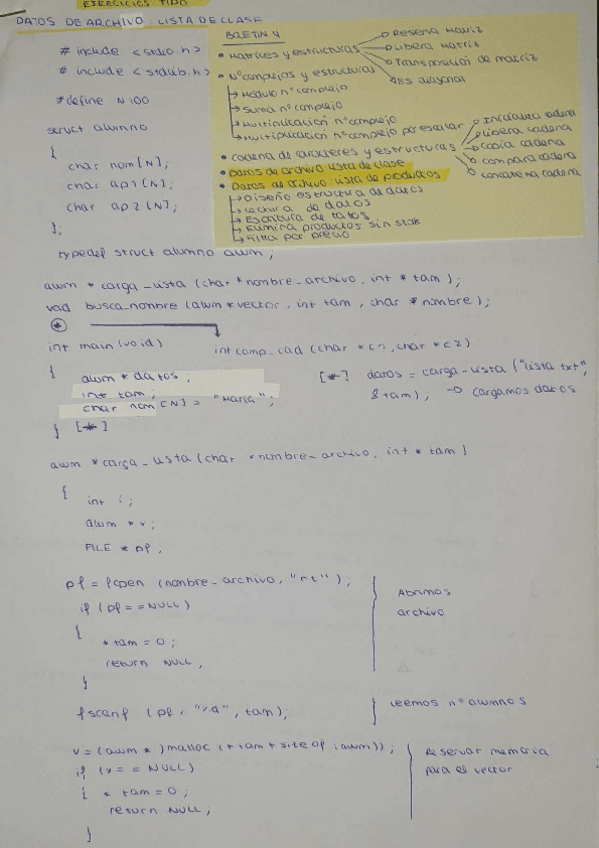 EJERCICIOS TIPO
DATOS DE ARCHIVO: LISTA DE CLASE
# include <stdio.h>
# include <stdlib.h>
#define N 100
struct alumno
{
char nom[N];
char ap1[N];
char ap2[N];
};
typedef struct alumno alum;
BOLETIN 4
• Matrices y estructuras
Reserva Matriz
Libera Matriz
Transposición de matriz
Es diagonal
• Nº complejos y estructuras
↳ Módulo nº complejo
↳ Suma nº complejo
↳ Multiplicación nº complejo
↳ Multiplicación nº complejo por escalar
• Cadena de caracteres y estructuras
Inicializa cadena
Libera cadena
Copia cadena
compara cadena
concatena cadena
• Datos de archivo lista de clase
• Datos de archivo: lista de productos
↳ Diseño estructura de datos
↳ Lectura de datos
↳ Escritura de datos
↳ Elimina productos sin stok
↳ Filtra por precio
alum * carga_lista (char *nombre_archivo, int * tam);
void busca_nombre (alum *vector, int tam, char *nombre);
int main(void)
int comp_cad (char *c1, char *c2)
{
alum * datos;
int tam;
char nom[N] = "Maria";
} [*]
[*] datos = carga_lista ("lista.txt",
&tam); → cargamos datos
alum *carga_lista (char *nombre_archivo, int * tam)
{
int i;
alum * v;
FILE * pf;
pf = fopen (nombre_archivo, "rt");
if (pf == NULL)
{
*tam = 0;
return NULL;
}
Abrimos
archivo
fscanf (pf, "%d", tam);
Leemos nº alumnos
v = (alum *) malloc (*tam * sizeof (alum));
if (v == NULL)
{ * tam = 0;
return NULL;
}
Reservar memoria
para el vector